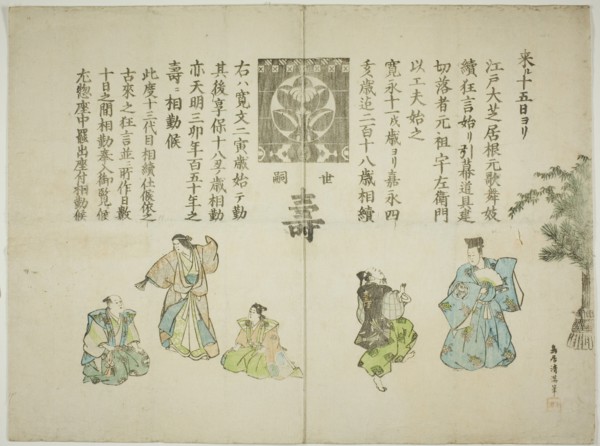 来ル十五日ヨリ
江戸大芝居根元歌舞妓
續狂言始リ引幕道具建
切落者元祖宇左衛門
以工夫始之
寛永十一戌歳ヨリ嘉永四
亥歳迄二百十八歳相續
世嗣
壽
右ハ寛文二寅歳始テ勤
其後享保十八丑歳相勤
亦天明三卯年百五十年之
壽ニ相勤候
此度十三代目相續仕候依之
古來之狂言並ニ所作日數
十日之間相勤奉入御覧候
尤惣座中羅出座付相勤候
鳥居清満筆